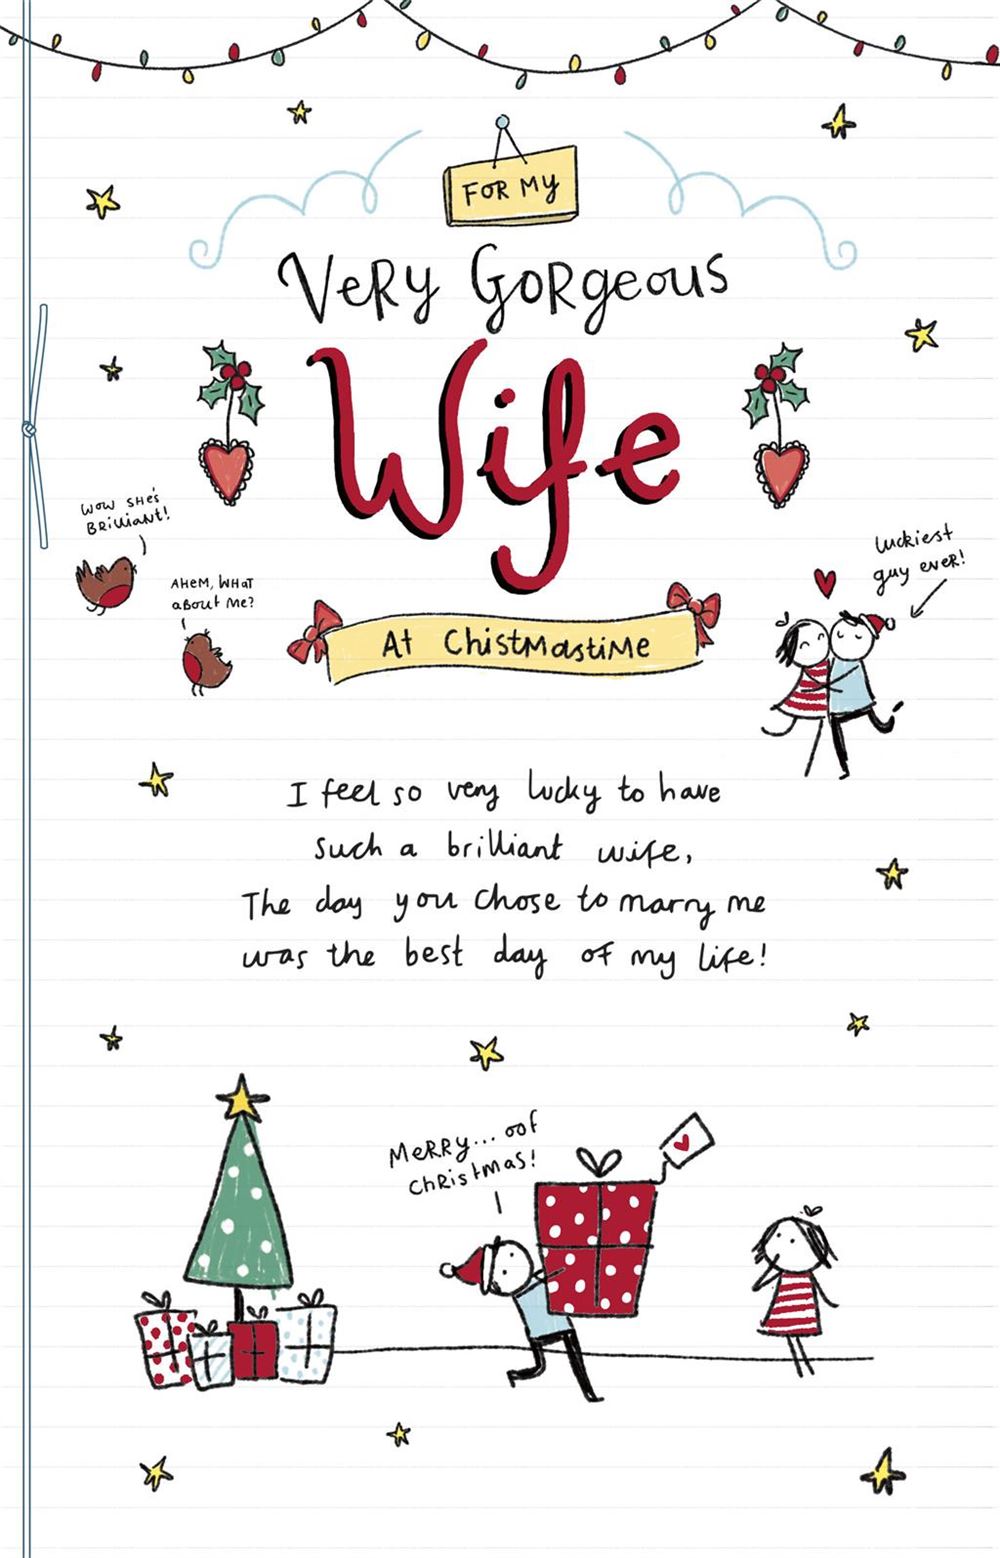 FOR MY
VeRy GoRgeous
Wife
WOW SHe's
BRilliant!
AHEM, WHat
aBout Me?
luckiest
guy ever!
At ChistMastiMe
I feel so very lucky to have
such a brilliant wife,
The day you chose to marry me
was the best day of my life!
MeRRy... oof
chRistmas!